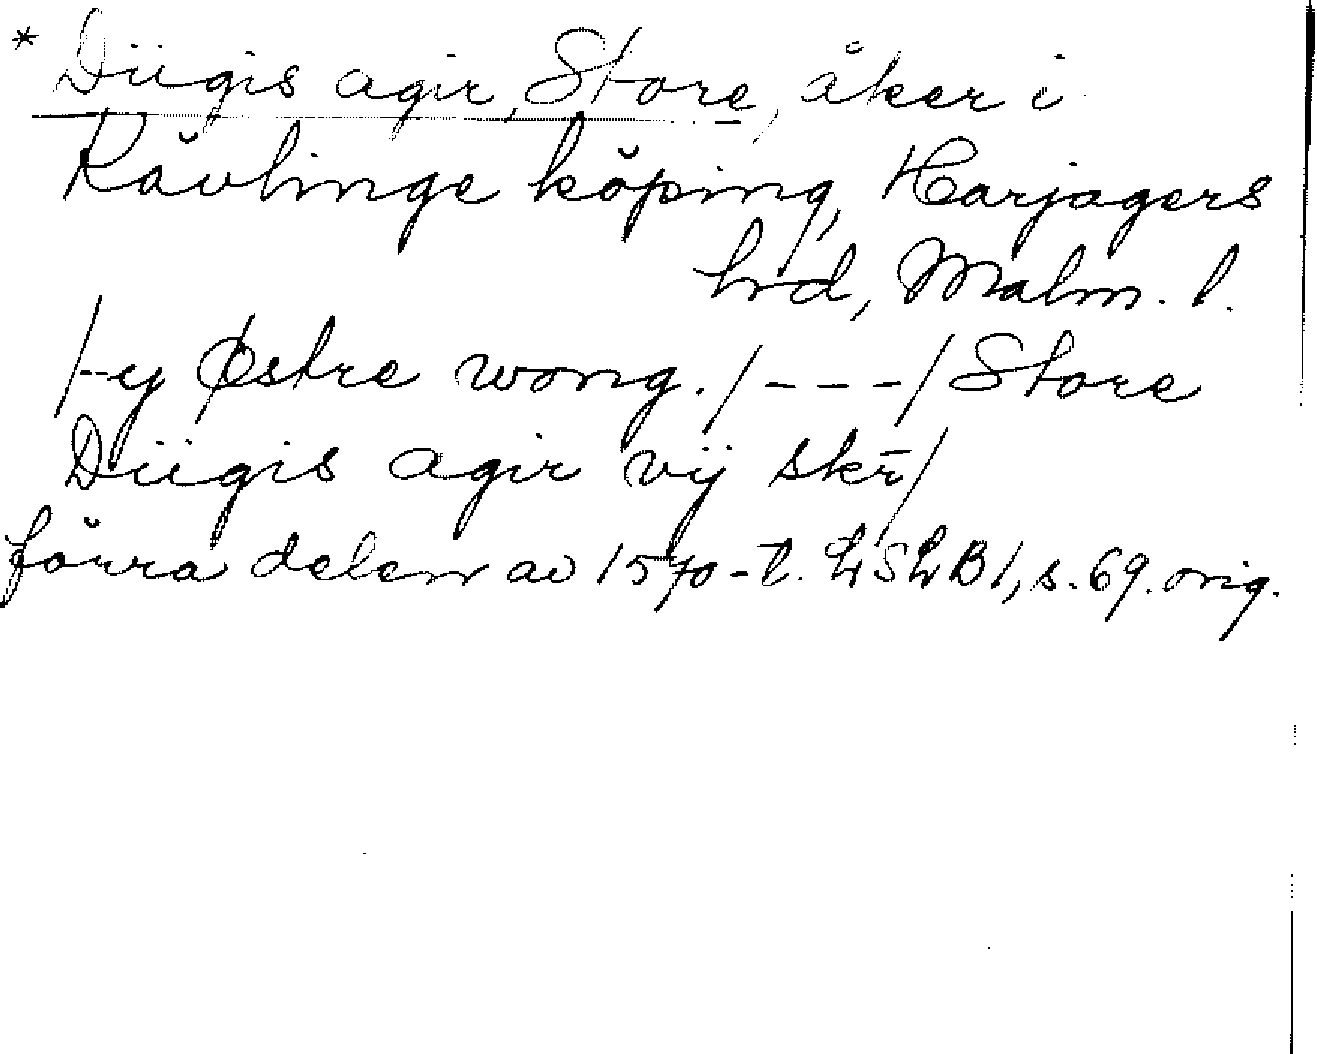 * Diigis agir, Store, åker i
Kävlinge köping, Harjagers
hrd, Malm. l.
/-y Østre wong./---/Store
Diigis agir vij skr̄/
förra delen av 1570-t. LSLB1, s. 69. orig.